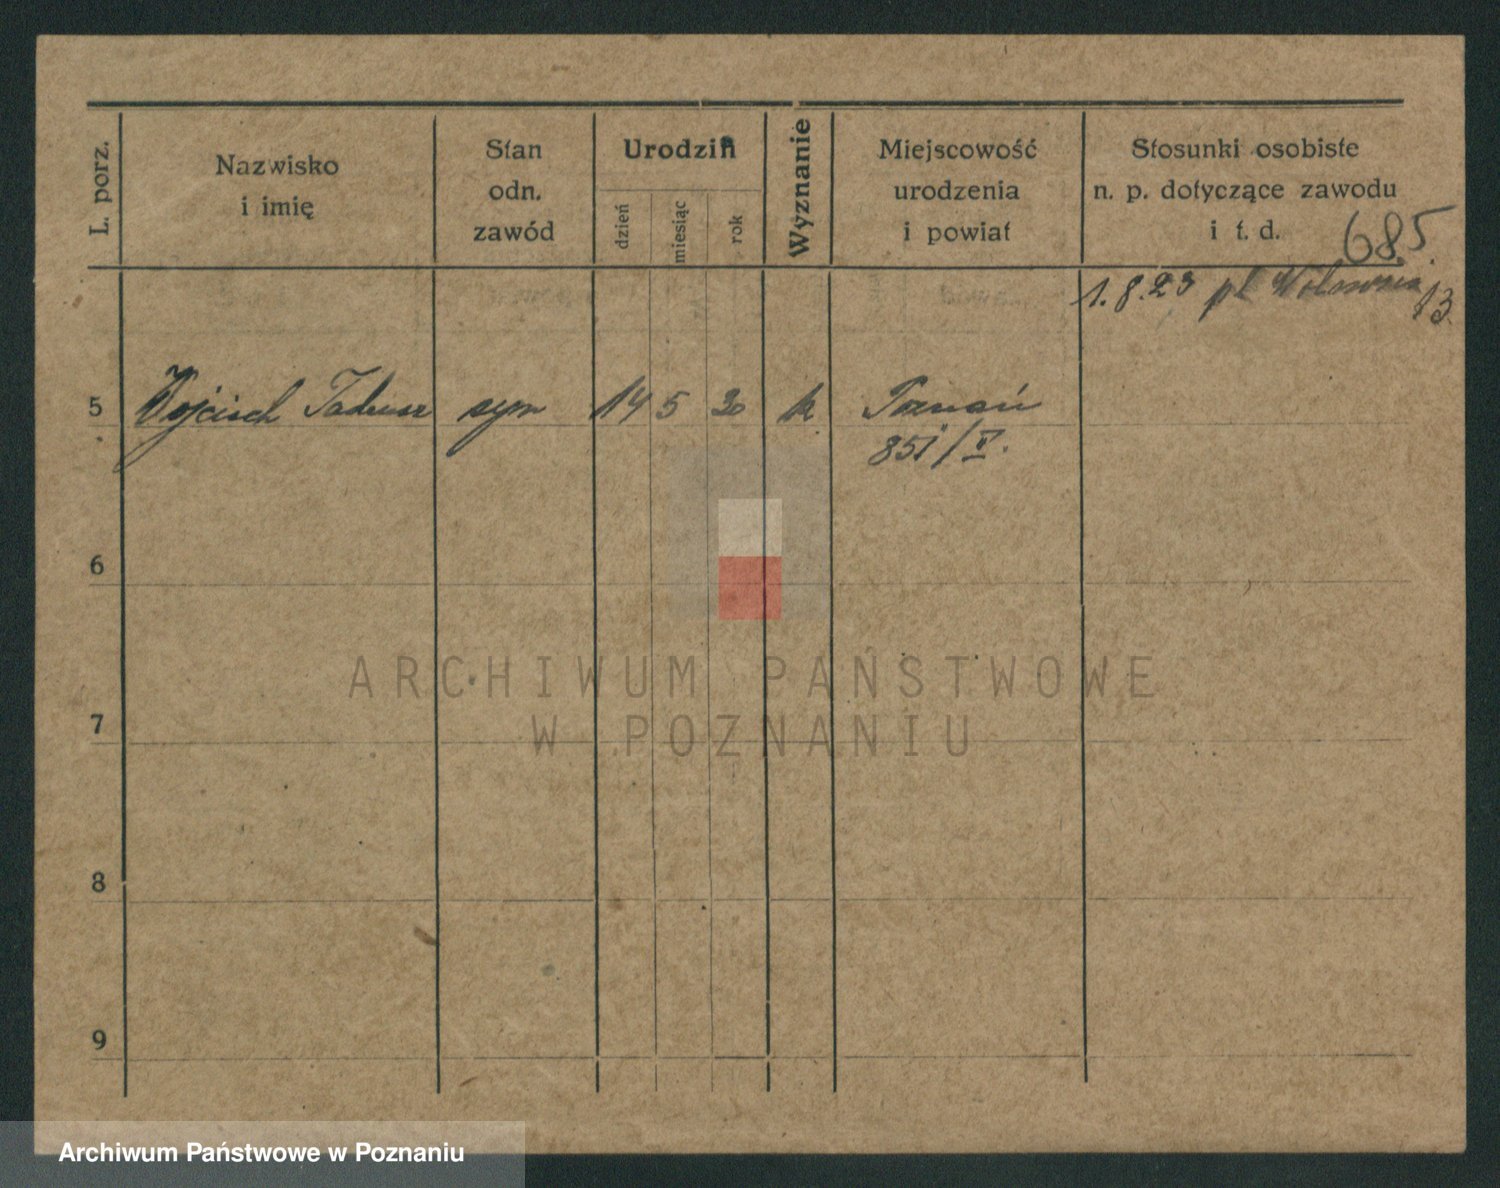 L. porz.
Nazwisko
i imię
Stan
odn.
zawód
Urodzin
dzień
miesiąc
rok
Wyznanie
Miejscowość
urodzenia
i powiat
Stosunki osobiste
n. p. dotyczące zawodu
i t. d.
685.
1.8.23 pl
13
5 Wojciech Tadeusz syn 14 5 20 k Poznań
851/V.
6
ARCHIWUM PAŃSTWOWE
7
W POZNANIU
8
9
Archiwum Państwowe w Poznaniu